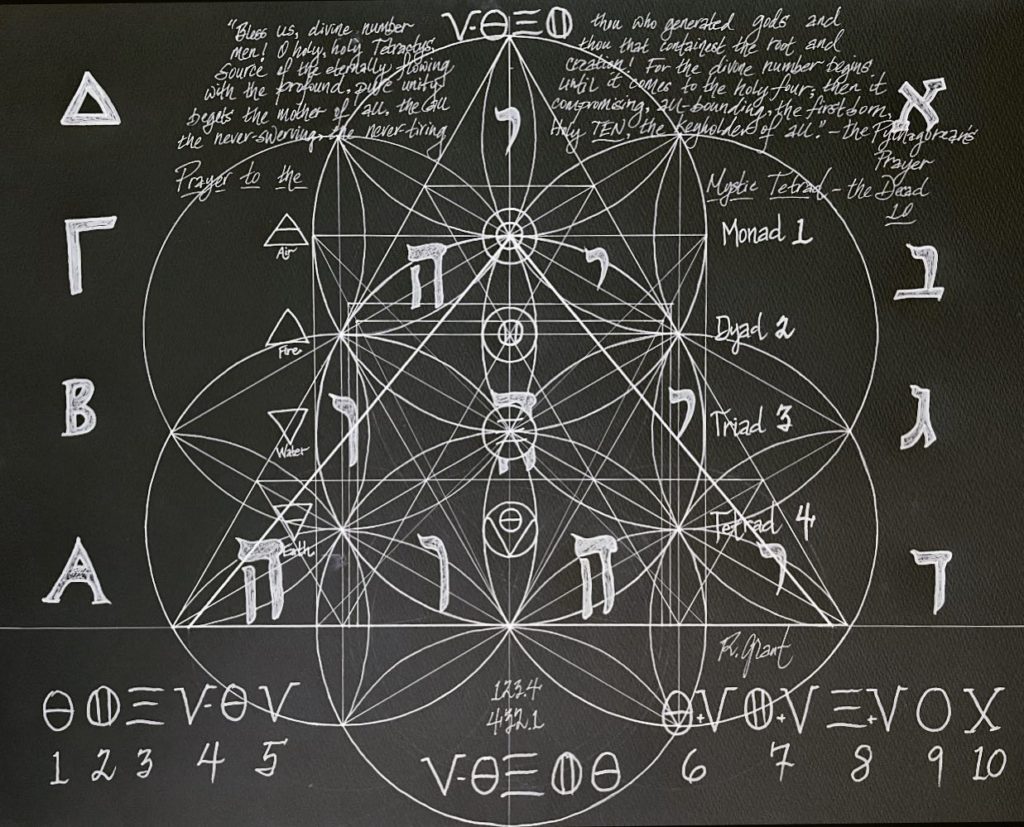 V-ΘΞⵀ
"Bless us, divine number thou who generated gods and
men! O holy, holy Tetractys, thou that containest the root and
Source of the eternally flowing creation! For the divine number begins
with the profound, pure unity until it comes to the holy four; then it
begets the mother of all, the all compromising, all-bounding, the first born
the never-swerving, the never-tiring Holy TEN, the keyholder of all." - the Pythagorean's
Prayer
Prayer to the Mystic Tetrad - the Decad
10
Δ י א
Air Monad 1
Γ ה י ב
Fire Dyad 2
B ו ה י ג
Water Triad 3
Earth Tetrad 4
A ה ו ה י ד
R. Grant
1234
432.1
Θ ⵀ Ξ V-Θ V
1 2 3 4 5
Θ+V ⵀ+V Ξ+V O X
6 7 8 9 10
V-ΘΞⵀΘ